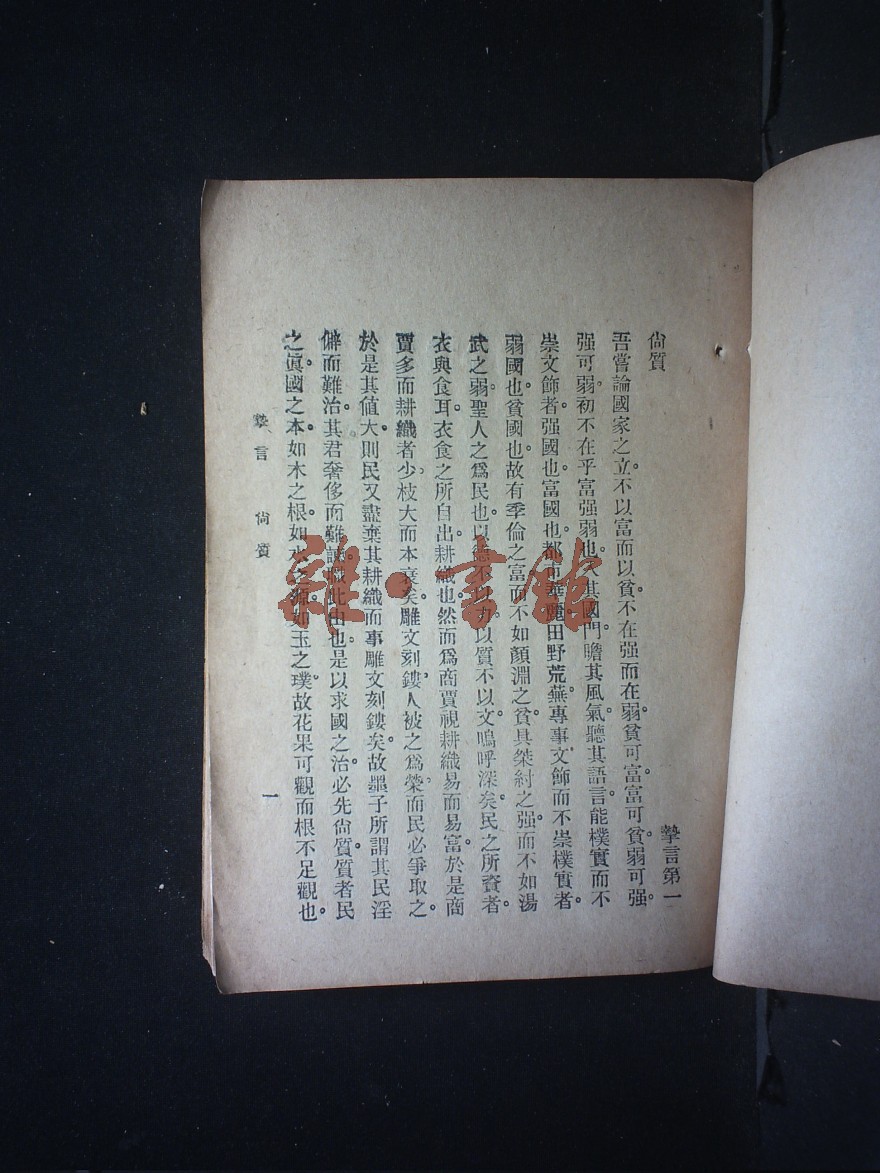 摯言第一
尙質
吾嘗論國家之立。不以富而以貧。不在强而在弱。貧可富。富可貧。弱可强。
强可弱。初不在乎富强弱也。入其國門。瞻其風氣。聽其語言。能樸實而不
崇文飾者。强國也。富國也。都市華麗。田野荒蕪。專事文飾而不崇樸實者。
弱國也。貧國也。故有季倫之富。而不如顏淵之貧。具桀紂之强。而不如湯
武之弱。聖人之爲民也。以德不以力。以質不以文。嗚呼深矣。民之所資者。
衣與食耳。衣食之所自出。耕織也。然而爲商賈視耕織易而易富。於是商
賈多而耕織者少。枝大而本衰矣。雕文刻鏤。人被之爲榮。而民必爭取之。
於是其値大。則民又盡棄其耕織而事雕文刻鏤矣。故墨子所謂其民淫
僻而難治。其君奢侈而難諫。職此由也。是以求國之治。必先尙質。質者民
之眞。國之本。如木之根。如水之源。如玉之璞。故花果可觀而根不足觀也。
摯言 尙質
一
雜·書館